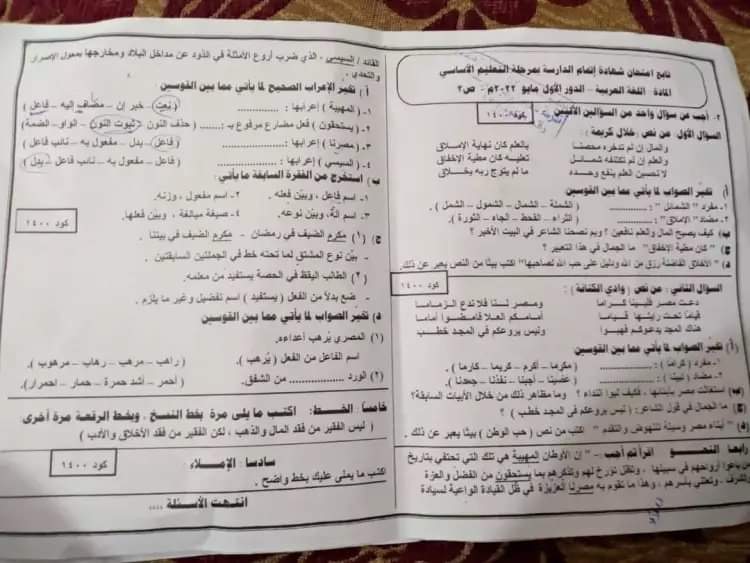 تابع امتحان شهادة إتمام الدراسة بمرحلة التعليم الأساسي
المادة: اللغة العربية - الدور الأول مايو ٢٠٢٢م - ص٢
٢- أجب عن سؤال واحد من السؤالين الآتيين:
كود ١٤٠٠
السؤال الأول: من نص (خلال كريمة):
والمال إن لم تدخره محصناً بالعلم كان نهاية الإملاق
والعلم إن لم تكتنفه شمائل تعليه كان مطية الإخفاق
لا تحسبن العلم ينفع وحده ما لم يتوج ربه بخلاق
(أ) تخيّر الصواب لما يأتي مما بين القوسين:
١- مفرد "الشمائل": ............ ( الشملة – الشمال – الشمول – الشمل ).
٢- مضاد "الإملاق": ............ ( الثراء – القحط – الجاه – الثورة ).
(ب) كيف يصبح المال والعلم نافعين ؟ وبم نصحنا الشاعر في البيت الأخير ؟
(ج) "كان مطية الإخفاق" ما الجمال في هذا التعبير ؟
(د) "الأخلاق الفاضلة رزق من الله ودليل على حب الله لصاحبها" اكتب بيتًا من النص يعبر عن ذلك.
السؤال الثاني: من نص (وادي الكنانة):
كود ١٤٠٠
دعت مصر فلبينا كراما ومصر لنا فلا ندع الزماما
قياماً تحت رايتها قياما أمامكم العلا فامضوا أماما
هناك المجد يدعوكم فهبوا وليس يروعكم في المجد خطب
(أ) تخيّر الصواب لما يأتي مما بين القوسين:
١- مفرد ( كرامًا ): ............ ( مكرما – أكرم – كريما – كارما ).
٢- مضاد ( لبينا ): ............ ( عصينا – أجبنا – نفذنا – جحدنا ).
(ب) استغاثت مصر بأبنائها، فكيف لبوا النداء ؟ وما مظاهر ذلك من خلال الأبيات السابقة؟
(ج) ما الجمال في قول الشاعر: ( ليس يروعكم في المجد خطب ) ؟
(د) " أبناء مصر وسيلة للنهوض والتقدم " اكتب من نص (حب الوطن) بيتًا يعبر عن ذلك.
رابعًا النحو اقرأ ثم أجب -- " إن الأوطان المهيبة هي تلك التي تحتفي بتاريخ
من باعوا أرواحهم في سبيلها ، وتظل تؤرخ لهم وتذكرهم بما يستحقون من الفضل والعزة
والشرف ، وتعتني بأسرهم ، وهذا ما تقوم به مصرنا العزيزة في ظل القيادة الواعية لسيادة
القائد / السيسي ، الذي ضرب أروع الأمثلة في الذود عن مداخل البلاد ومخارجها بمعول الإصرار
والتحدي .
أ ) تخيّر الإعراب الصحيح لما يأتي مما بين القوسين:
١- (المهيبة ) إعرابها : ............ ( نعت – خبر إن – مضاف إليه – فاعل )
٢- (يستحقون) فعل مضارع مرفوع بـ ............ ( حذف النون – ثبوت النون – الواو- الضمة)
٣- (مصرنا ) إعرابها : ............ ( فاعل – بدل – مفعول به – نائب فاعل )
٤- ( السيسي ) إعرابها : ............ ( فاعل – مفعول به – نائب فاعل – بدل )
ب) استخرج من الفقرة السابقة ما يأتي:
١- اسم فاعل ، وبيّن فعله . ٢- اسم مفعول ، وزنه .
٣- اسم آلة، وبيّن نوعه . ٤- صيغة مبالغة ، وبيّن فعلها.
كود ١٤٠٠
ج) (١) مكرم الضيف في رمضان - مكرم الضيف في بيتنا .
- بيّن نوع المشتق لما تحته خط في الجملتين السابقتين .
(٢) الطالب اليقظ في الحصة يستفيد من معلمه.
- ضع بدلاً من الفعل ( يستفيد ) اسم تفضيل وغير ما يلزم .
د) تخيّر الصواب لما يأتي مما بين القوسين
(١) المصري يُرهب أعداءه.
اسم الفاعل من الفعل ( يُرهب ). ( راهب – مرهب – رهاب – مرهوب ).
(٢) الورد ............ من الشفق. ( أحمر – أشد حمرة – حمار – احمرار).
خامسًا : الخــط: اكتب ما يلى مرة بخط النسخ ، وبخط الرقعة مرة أخرى:
( ليس الفقير من فقد المال والذهب ، لكن الفقير من فقد الأخلاق والأدب )
سادسا : الإملاء
كود ١٤٠٠
اكتب ما يملى عليك بخط واضح .
انتهت الأسئلة ....